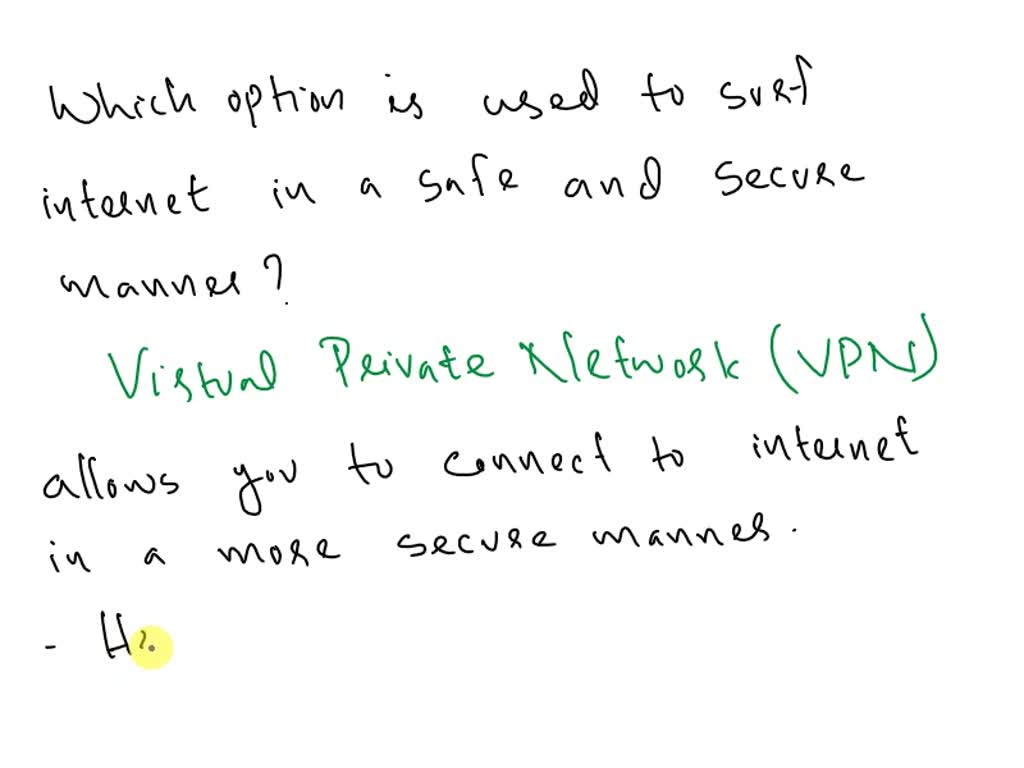 Which option is used to surf
internet in a safe and secure
manner?
Virtual Private Network (VPN)
allows you to connect to internet
in a more secure manner.
-